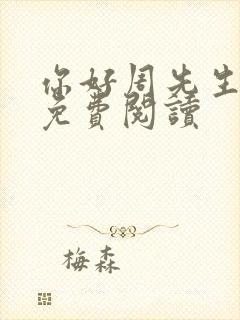 你好周先生
免費閱讀
梅森